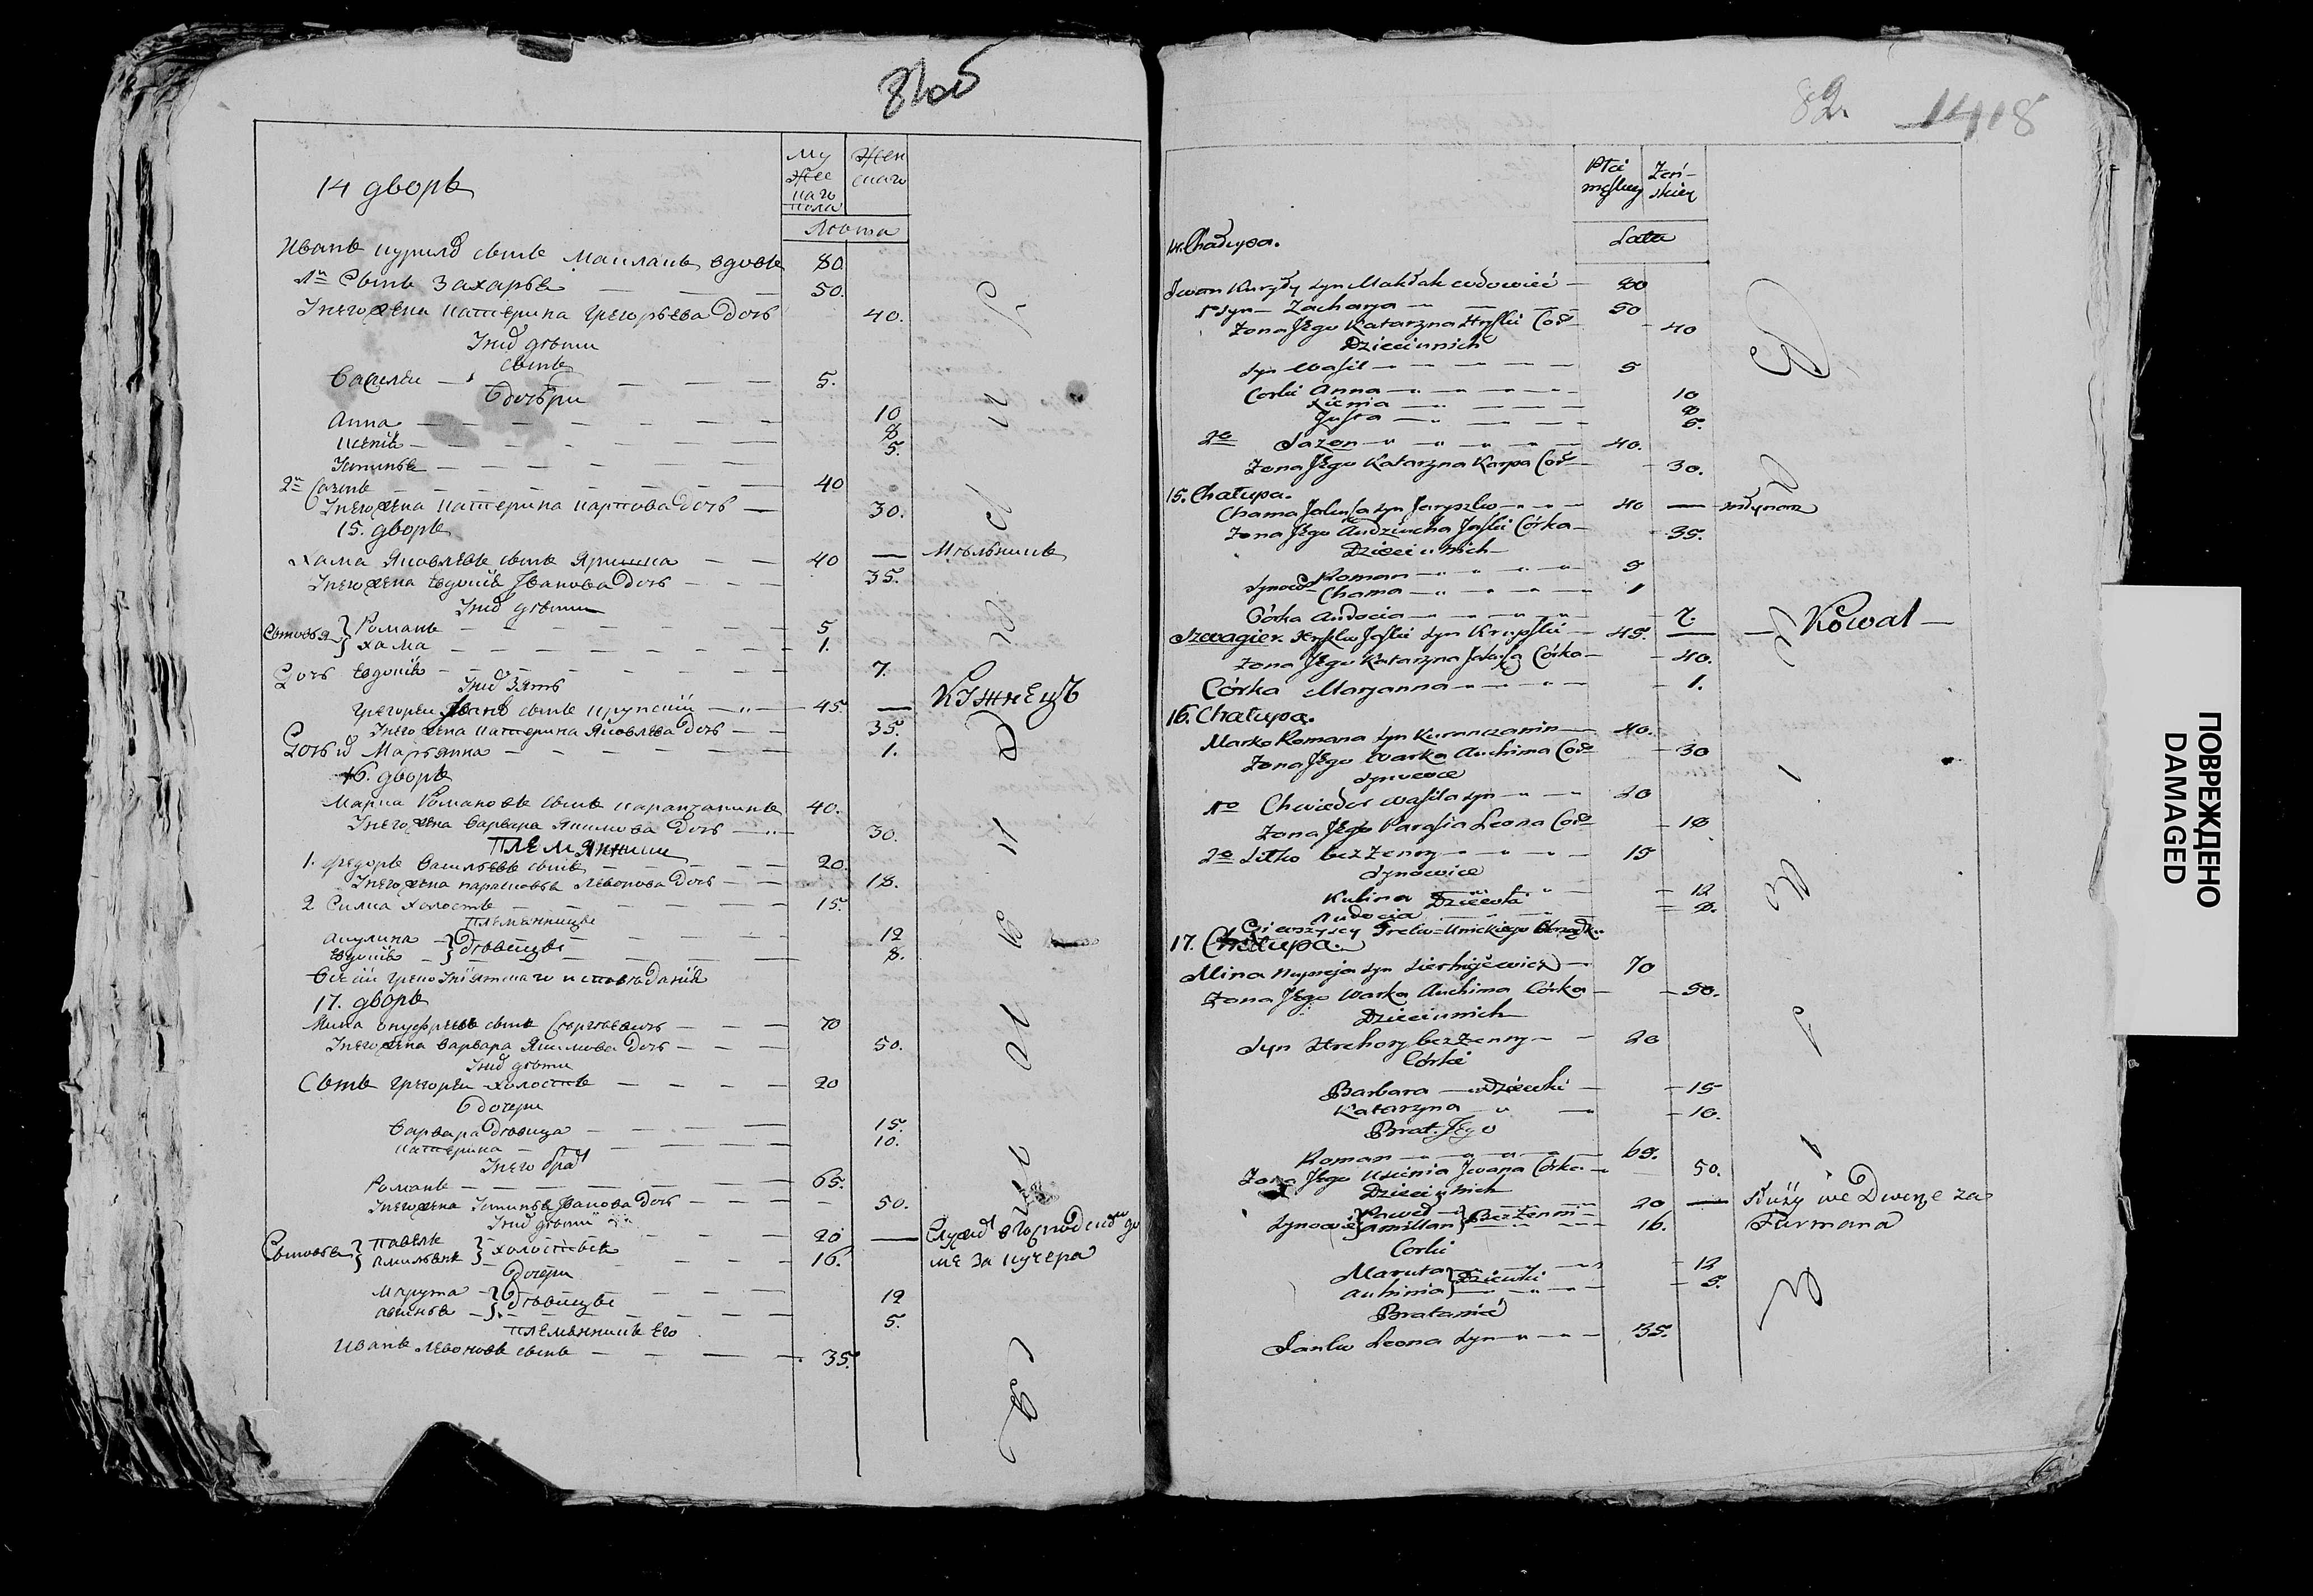 81об
14 дворъ
Му
жес
каго
пола
Жен
скаго
Лѣта
Иванъ Курилъ сынъ Маклакъ вдовъ 80
1й Сынъ Захарья 50.
У него жена Катерина Грегорьева Дочь 40.
У них дѣти
Сынъ
Василий 5.
Дочери
Анна 10
Ксенія 8
Устинья 5.
2й Сазонъ 40
У него жена Катерина Карпова Дочь 30.
15. дворъ
Хама Яковлевъ сынъ Яришка 40 — Мельникъ
У него жена Евдокія Иванова Дочь 35.
У них дѣти
Сыновья } Романъ 5
Хама 1.
Дочь Евдокія 7.
У них Зять
Грегорей Иванов сынъ Крупскій 45. — Кузнецъ
У него жена Катерина Яковлева Дочь 35.
Дочь их Марьянна 1.
16. дворъ
Марка Романовъ сынъ Каранчанинъ 40.
У него жена Варвара Якимова Дочь 30.
Племянники
1. Федоръ Васильевъ сынъ 20.
У него жена Парасковья Левонова Дочь 18.
2 Силка Холостъ 15.
Племянницы
Акулина } Дѣвицы 12
Евдокія 8.
Всѣ они греко Уніятскаго исповѣданія
17. дворъ
Мина Онуфріевъ сынъ Сергіевичъ 70
У него жена Варвара Якимова Дочь 50.
У них дѣти
Сынъ Грегорей холостъ 20
Дочери
Варвара Дѣвица 15.
Катерина 10.
У него брат
Романъ 65.
У него жена Устинья Иванова Дочь 50.
У них дѣти
Сыновья } Павелъ } холостые 20 — Служит в господском до
Амильянъ 16. ме за кучера
Дочери
Марута } Дѣвицы 12
Авгинья 5.
Племянникъ Его
Иванъ Левоновъ сынъ 35.
82. 1418
Płci
męskiey
Żeń-
skiey
Lata
14. Chałupa.
Iwan Kuryły syn Makłak wdowiec 80
1o syn Zacharya 50
Żona Jego Katarzyna Hryśki Cór 40
Dzieci u nich
Syn Wasil 5
Corki Anna 10
Xienia 8
Justa 5.
2o Sazon 40.
Żona Jego Katarzyna Karpa Cór 30.
15. Chałupa.
Chama Jakuba syn Jaryszko 40 — młynarz
Żona Jego Audziucha Jaśki Córka 35.
Dzieci u nich
Synowie Roman 5
Chama 1
Córka Audocia 7.
Szwagier. Hryśko Jaśki syn Krupski 45. — Kowal
Żona Jego Katarzyna Jakuba Córka 40.
Córka Maryanna 1.
16. Chałupa.
Marko Romana syn Karanczanin 40.
Żona Jego Warka Auchima Cór 30
Synowce
1o Chwiedor Wasila syn 20
Żona Jego Parasia Leona Cór 18
2o Silko bez Żenny 15
Synowice
Kulina Dziewki 12
Audocia 8.
Ci wszyscy Greko-Unickiego Obrządku
17. Chałupa.
Mina Nupreja syn Sierhijewicz 70
Żona Jego Warka Auchima Córka 50.
Dzieci u nich
Syn Hrehory bez Żenny 20
Córki
Barbara Dziewki 15
Katarzyna 10.
Brat Jego
Roman 65.
Żona Jego Uscinia Jwana Córka 50.
Dzieci u nich
Synowie } Paweł } Bez Żenni 20 — Służy we Dworze za
Amillan 16. Furmana
Corki
Maruta } Dziewki 12
Auhinia 5.
Bratanic
Janko Leona syn 35.
ПОВРЕЖДЕНО
DAMAGED